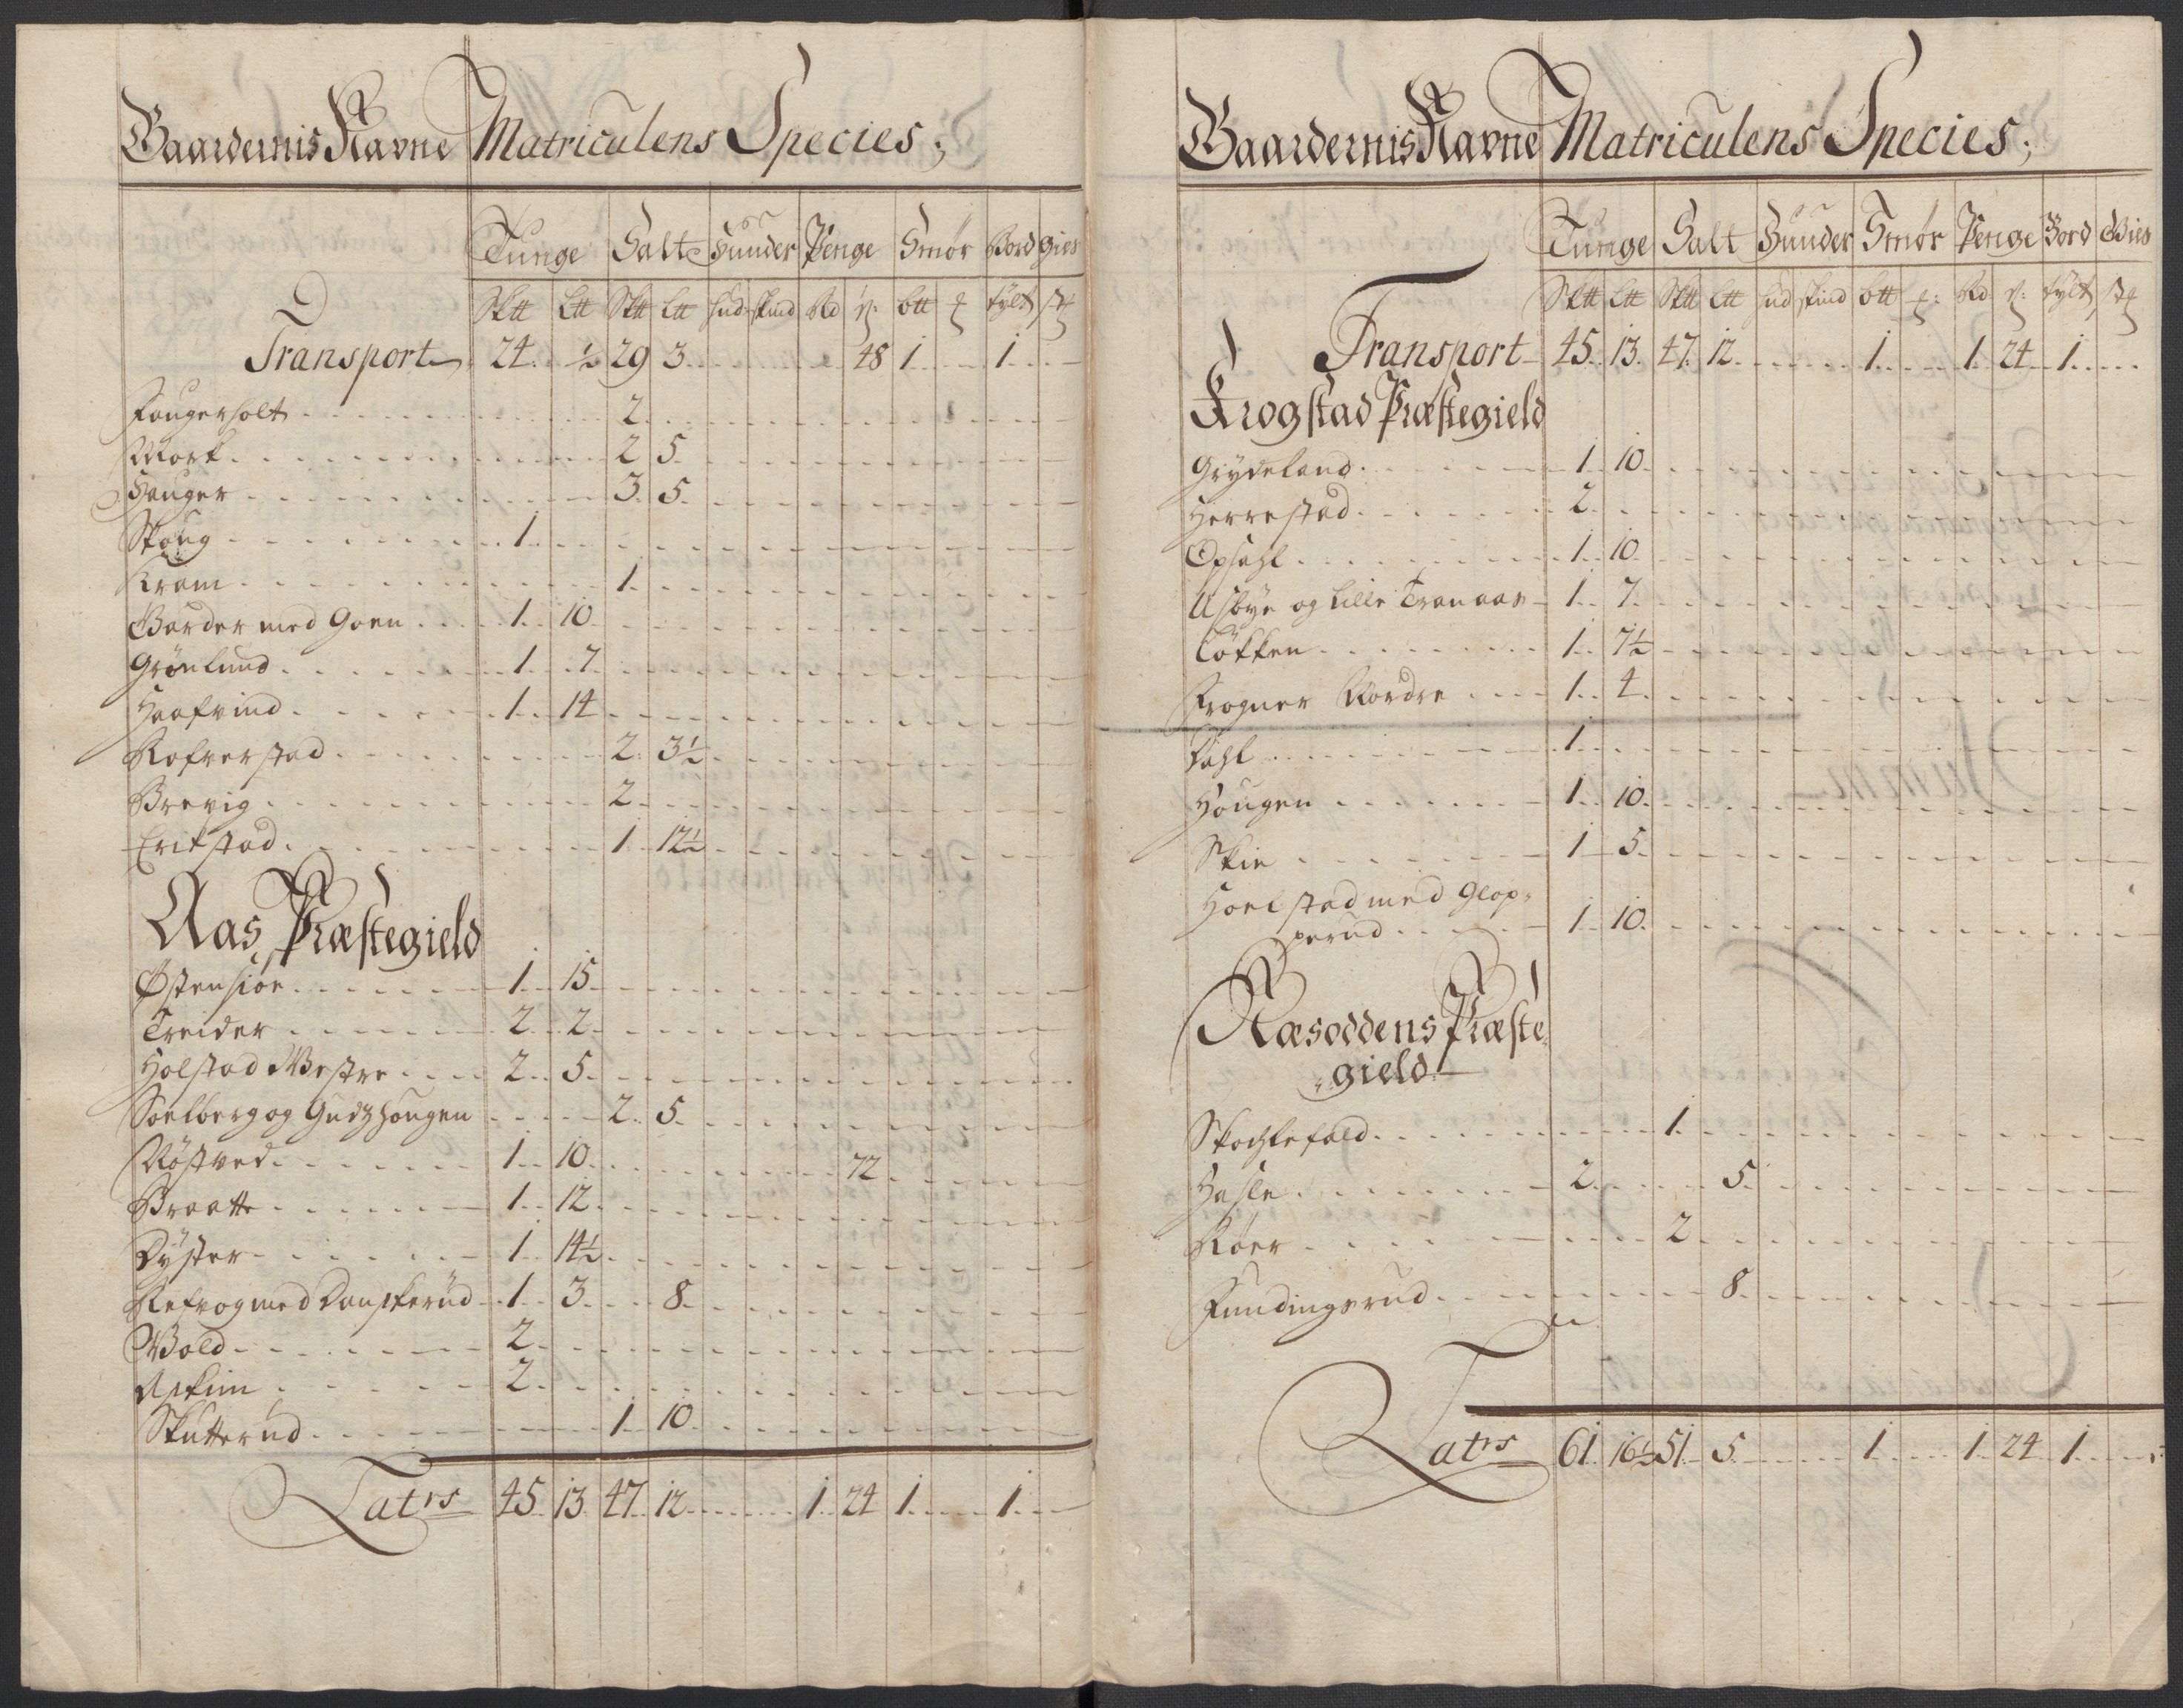 Gaardernis Navne Matriculens Species;
Tunge Salt Huuder Penge Smør Bord Gies
Sktt Ltt Sktt Ltt hud skind Rd btt tylt
Transport 24. ½ 29 3 48 1 1
Faugerholt 2
Mork 2 5
Hauger 3 5
Skoug 1
Kram 1
Garder med Goen 1 10
Grønlund 1 7
Haafvind 1 14
Rafverstad 2 3½
Brevig 2
Erikstad 1 12½
Aas Præstegield
Østensiøe 1 15
Treider 2 2
Holstad Westre 2 5
Soelberg og Gudzhougen 2 5
Røstved 1 10 72
Braatte 1 12
Dyster 1 14½
Refvog med Danskerud 1 3 8
Wold 2
Askim 2
Skutterud 1 10
Lat:rs 45 13 47 12 1 24 1 1
Gaardernis Navne Matriculens Species;
Tunge Salt Huuder Smør Penge Bord Gies
Sktt Ltt Sktt Ltt hud skind btt Rd tylt
Transport 45 13 47 12 1 1 24 1
Krogstad Præstegield
Grydeland 1 10
Herrestad 2
Opsahl 1 10
Usbye og Lille Tranaas 1 7
Løkken 1 7½
Frogner Nordre 1 4
Dahl 1
Hougen 1 10
Skie 1 5
Hoelstad med Glop-
perud 1 10
Næsoddens Præste
gield
Skochefald 1
Hasle 2 5
Røer 2
Fundingsrud 8
Lat:rs 61 16½ 51 5 1 1 24 1